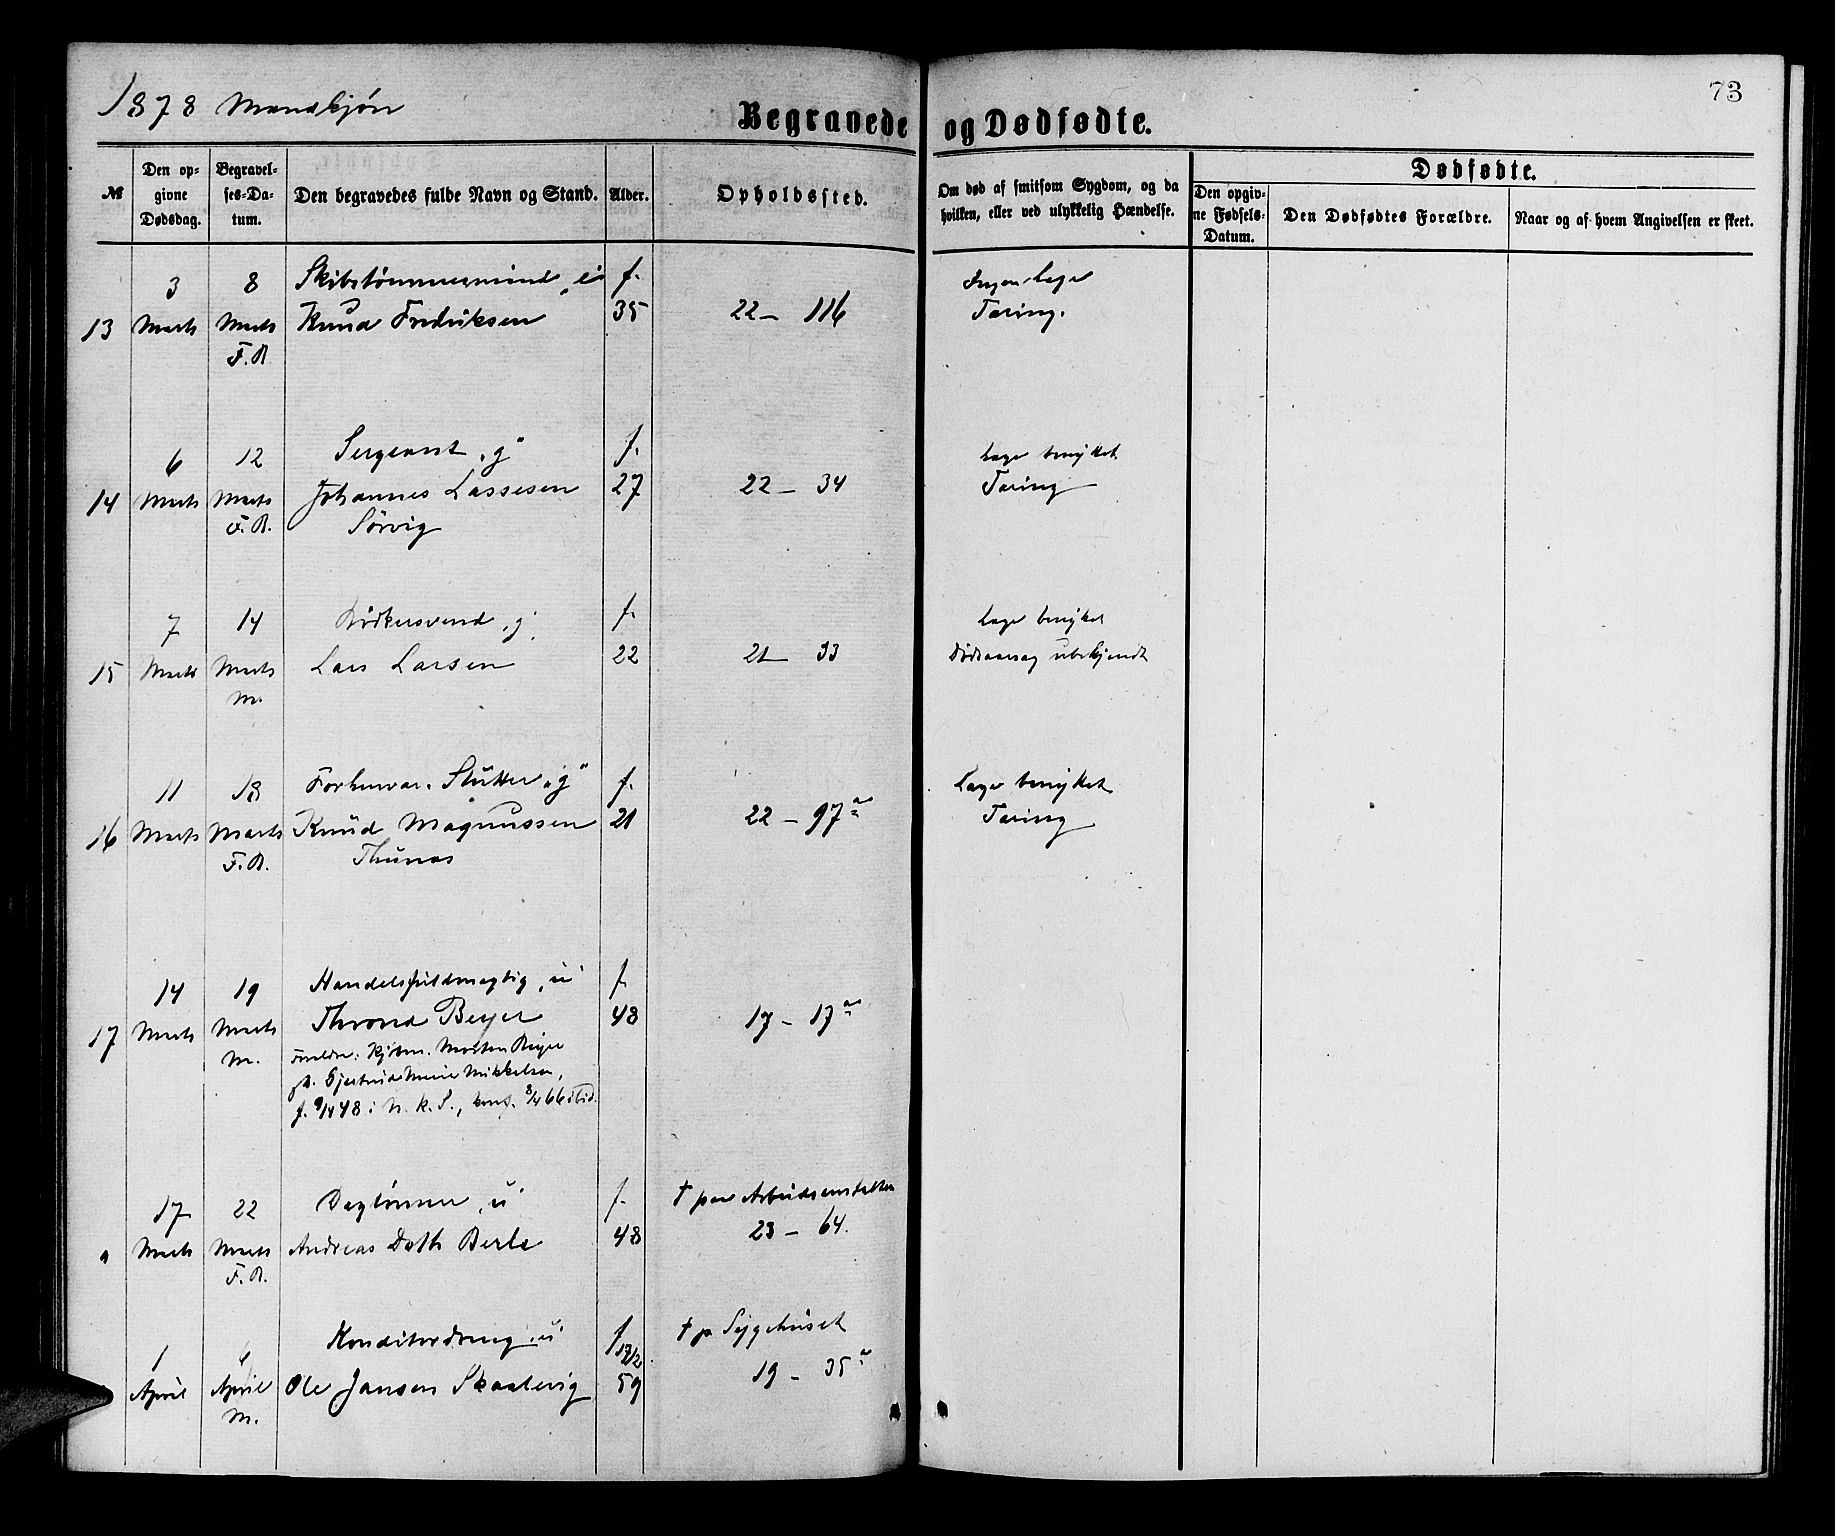 1878 Mandkjøn
Begravede og Dødfødte.
73
№
Den opgivne Dødsdag.
Begravelses-Datum.
Den begravedes fulde Navn og Stand.
Alder.
Opholdssted.
Om død af smitsom Sygdom, og da hvilken, eller ved ulykkelig Hændelse.
Dødfødte.
Den opgivne Fødsels-Datum.
Den Dødfødtes Forældre.
Naar og af hvem Angivelsen er skeet.
13
3 Marts
8 Marts F.R.
Skibstømmermand
Knud Fredriksen
f. 35
22 – 116
Ingen Læge
Tæring.
14
6 Marts
12 Marts F.R.
Sergeant „g“
Johannes Lassesen
Sørvig
f. 27
22 – 34
Læge benyttet
Tæring
15
7 Marts
14 Marts M.
Bødkersvend „g“
Lars Larsen
f. 22
21 – 33
Læge benyttet
Dødsaarsag ubekjendt
16
11 Marts
18 Marts F.R.
Forhenvær. „g“
Knud Magnussen
Thunæs
f. 21
22 – 97 a
Læge benyttet
Tæring
17
14 Marts
19 Marts M.
Handelsfuldmægtig „u“
Thrond Beyer
Forældre: Kjøbm. Morten Beyer
og Gjertrud Marie Mikkelsen,
f. 48 i N. K. S., konf. 66 ibid.
f. 48
17 – 17 a
17 Marts
22 Marts F.R.
Daglønner „u“
Andreas Dath Berle
f. 48
† paa Arbeidsanstalten
23 – 64.
1 April
6 April M.
Konditordreng „u“
Ole Jansen Skaalevig
f. 59
† p. Sygehuset
19 – 35 a